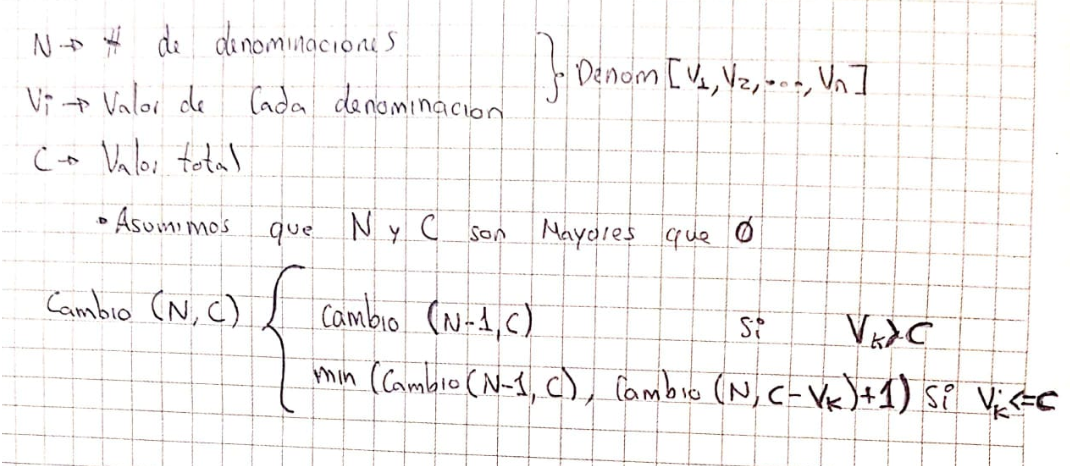 N → # de denominaciones
Vi → Valor de Cada denominacion
} Denom [V1, V2, ..., Vn]
C → Valor total
• Asumimos que N y C son Mayores que Ø
Cambio (N, C) {
cambio (N-1, C) si Vk>C
min (Cambio (N-1, C), Cambio (N, C-Vk)+1) si Vk<=C